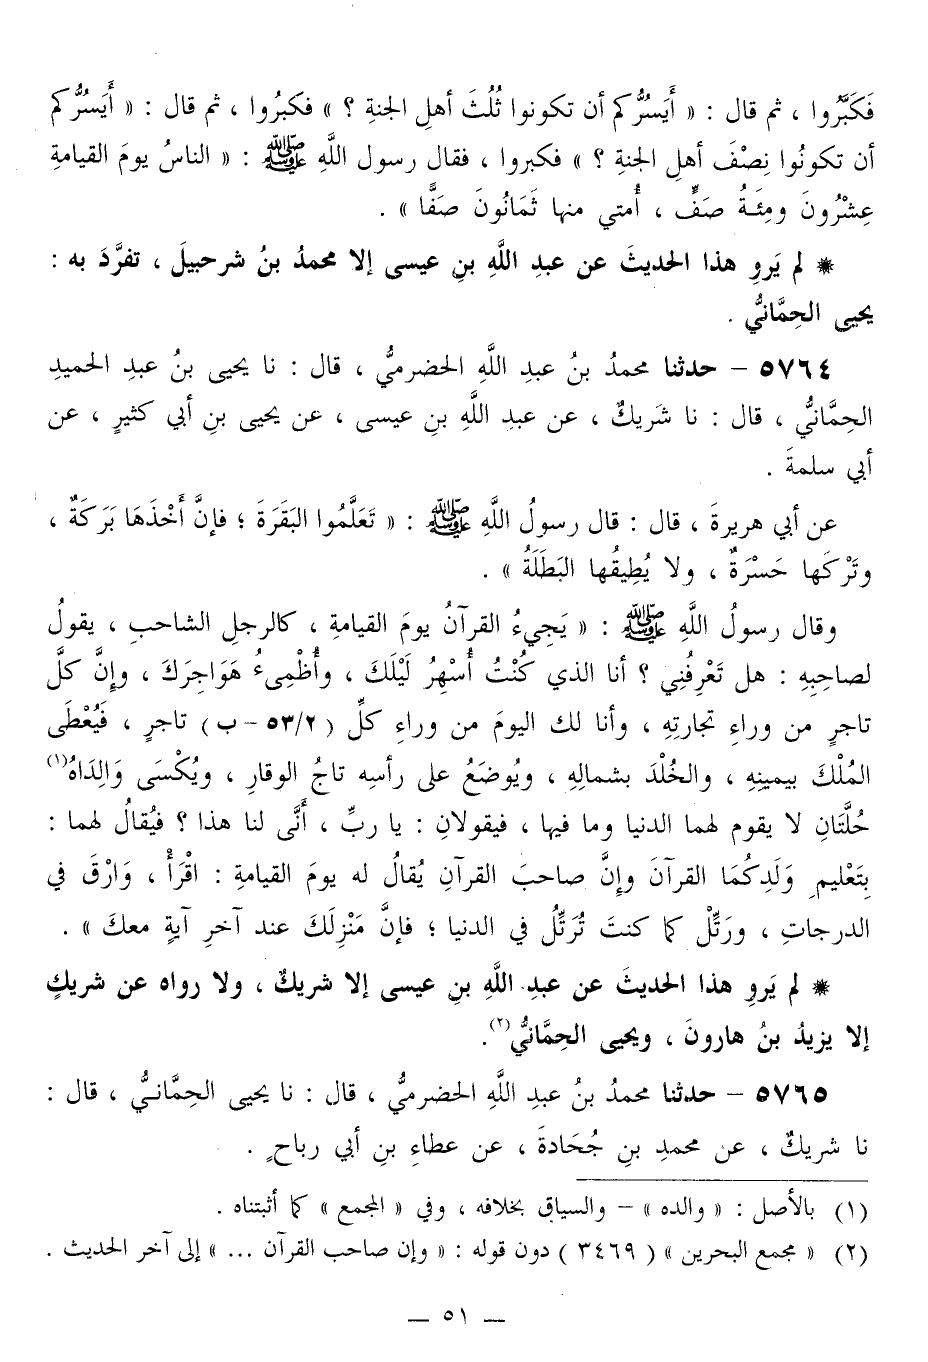 فَكَبَّرُوا ، ثم قال : « أَيَسُرُّكم أن تكونوا ثُلُثَ أهلِ الجنةِ ؟ » فكبرُوا ، ثم قال : « أَيَسُرُّكم
أن تكونُوا نِصْفَ أهلِ الجنةِ ؟ » فكبروا ، فقال رسول اللَّهِ ﷺ : « الناسُ يومَ القيامةِ
عِشْرُونَ ومِئَةُ صَفٍّ ، أُمتي منها ثَمَانُونَ صَفًّا » .
* لم يَروِ هذا الحديثَ عن عبدِ اللَّهِ بنِ عيسى إلا محمدُ بنُ شرحبيلَ ، تفرَّدَ به :
يحيى الحِمَّانيُّ .
٥٧٦٤ – حدثنا محمدُ بنُ عبدِ اللَّهِ الحضرميُّ ، قال : نا يحيى بنُ عبدِ الحميدِ
الحِمَّانيُّ ، قال : نا شَريكٌ ، عن عبدِ اللَّهِ بنِ عيسى ، عن يحيى بنِ أبي كثيرٍ ، عن
أبي سلمةَ .
عن أبي هريرةَ ، قال : قال رسولُ اللَّهِ ﷺ : « تَعَلَّمُوا البَقَرَةَ ؛ فإنَّ أَخْذَهَا بَرَكَةٌ ،
وتَرْكَها حَسْرَةٌ ، ولا يُطِيقُها البَطَلَةُ » .
وقال رسولُ اللَّهِ ﷺ : « يَجِيءُ القرآنُ يومَ القيامةِ ، كالرجلِ الشاحبِ ، يقولُ
لصاحِبِهِ : هل تَعْرِفُنِي ؟ أنا الذي كُنْتُ أُسْهِرُ لَيْلَكَ ، وأُظْمِىءُ هَوَاجِرَكَ ، وإنَّ كلَّ
تاجرٍ من وراءِ تجارتِهِ ، وأنا لك اليومَ من وراءِ كلِّ ( ٥٣/٢ – ب ) تاجرٍ ، فَيُعْطَى
المُلْكَ بيمينِهِ ، والخُلْدَ بشمالِهِ ، ويُوضَعُ على رأسِه تاجُ الوقارِ ، ويُكْسَى وَالِدَاهُ(١)
حُلَّتَانِ لا يقوم لهما الدنيا وما فيها ، فيقولانِ : يا ربِّ ، أَنَّى لنا هذا ؟ فيُقالُ لهما :
بِتَعْليمِ وَلَدِكُمَا القرآنَ وإنَّ صاحبَ القرآنِ يُقالُ له يومَ القيامةِ : اقْرَأْ ، وَارْقَ في
الدرجاتِ ، ورَتِّلْ كما كنتَ تُرَتِّلُ في الدنيا ؛ فإنَّ مَنْزِلَكَ عند آخرِ آيةٍ معكَ » .
* لم يَروِ هذا الحديثَ عن عبدِ اللَّهِ بنِ عيسى إلا شريكٌ ، ولا رواه عن شريكٍ
إلا يزيدُ بنُ هارونَ ، ويحيى الحِمَّانيُّ(٢).
٥٧٦٥ – حدثنا محمدُ بنُ عبدِ اللَّهِ الحضرميُّ ، قال : نا يحيى الحِمَّانيُّ ، قال :
نا شريكٌ ، عن محمدِ بنِ جُحَادةَ ، عن عطاءِ بنِ أبي رباحٍ .
(١) بالأصل : « والده » – والسياق بخلافه ، وفي « المجمع » كما أثبتناه .
(٢) « مجمع البحرين » ( ٣٤٦٩ ) دون قوله : « وإن صاحب القرآن ... » إلى آخر الحديث .
— ٥١ —